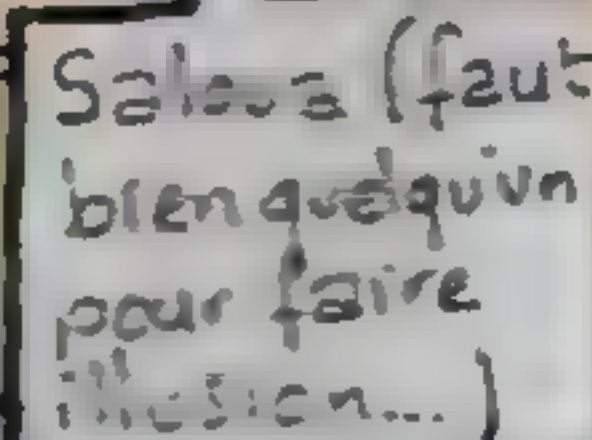 (faut
bien quelqu'un
pour faire
illusion...)